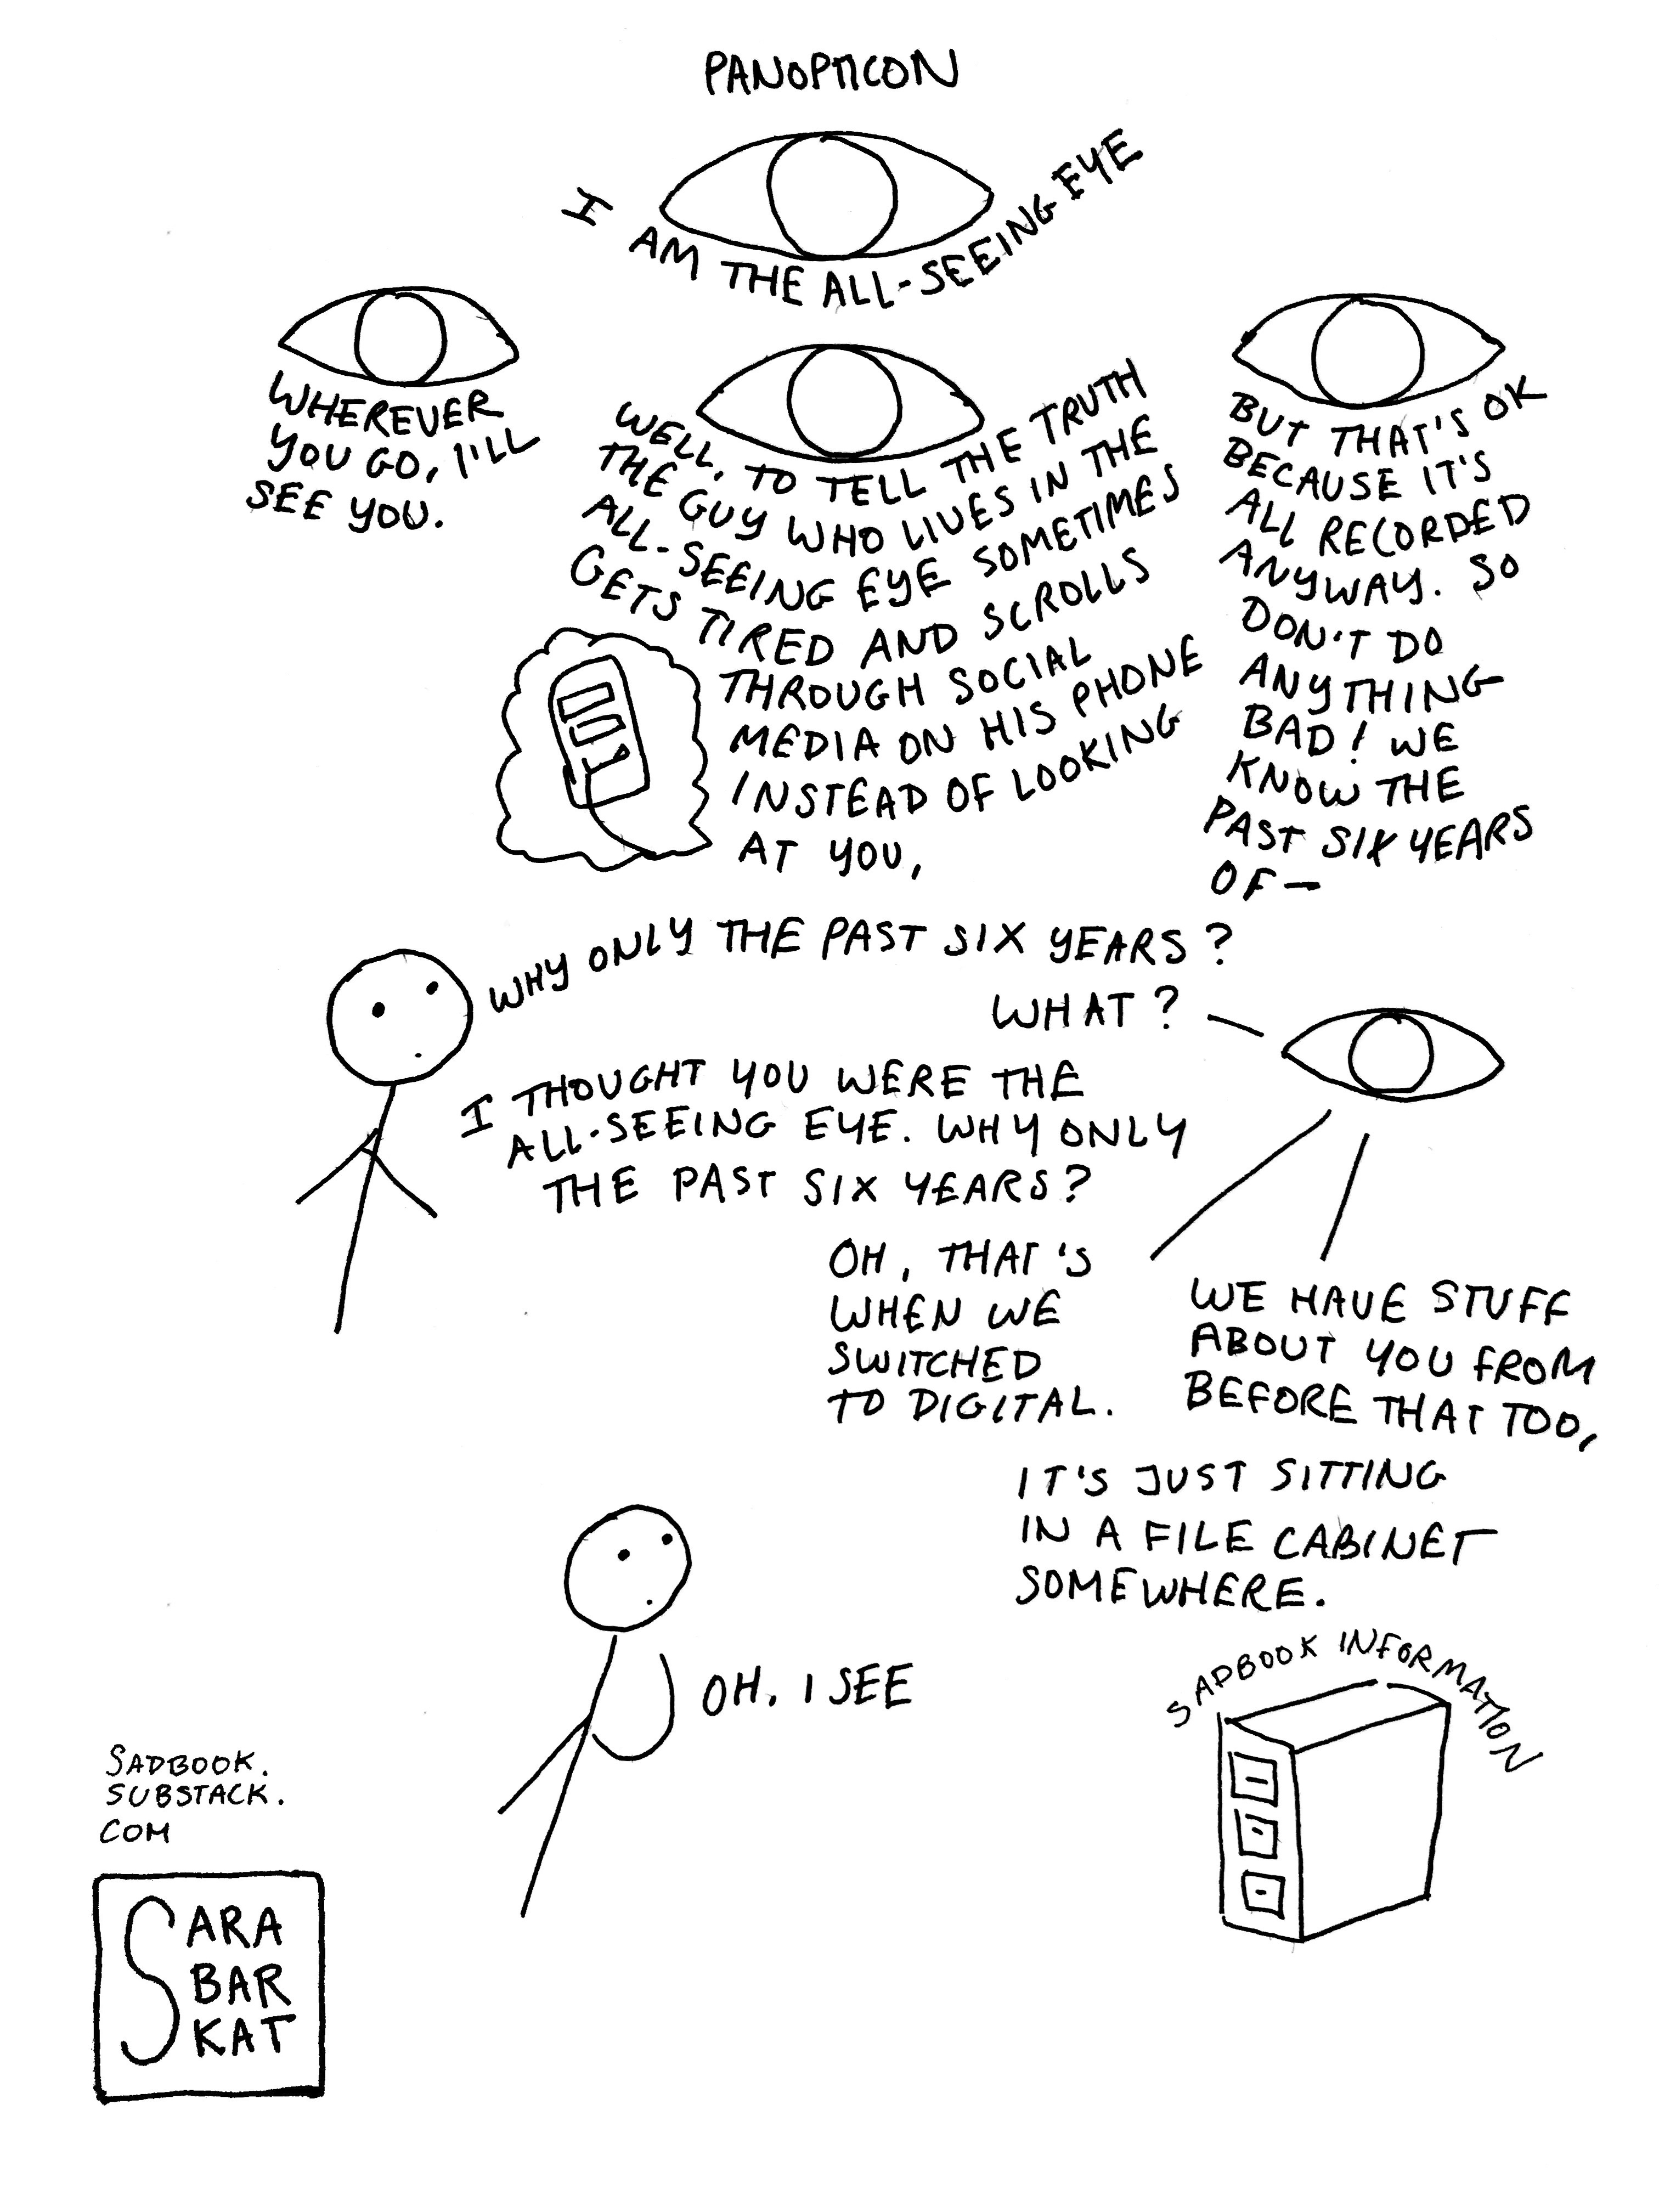 PANOPTICON
I AM THE ALL-SEEING EYE
WHEREVER
YOU GO, I'LL
SEE YOU.
WELL, TO TELL THE TRUTH
THE GUY WHO LIVES IN THE
ALL-SEEING EYE SOMETIMES
GETS TIRED AND SCROLLS
THROUGH SOCIAL
MEDIA ON HIS PHONE
INSTEAD OF LOOKING
AT YOU,
BUT THAT'S OK
BECAUSE IT'S
ALL RECORDED
ANYWAY. SO
DON'T DO
ANYTHING
BAD! WE
KNOW THE
PAST SIX YEARS
OF—
WHY ONLY THE PAST SIX YEARS?
WHAT?
I THOUGHT YOU WERE THE
ALL-SEEING EYE. WHY ONLY
THE PAST SIX YEARS?
OH, THAT'S
WHEN WE
SWITCHED
TO DIGITAL.
WE HAVE STUFF
ABOUT YOU FROM
BEFORE THAT TOO,
IT'S JUST SITTING
IN A FILE CABINET
SOMEWHERE.
OH. I SEE
SADBOOK INFORMATION
SADBOOK.
SUBSTACK.
COM
SARA
BAR
KAT